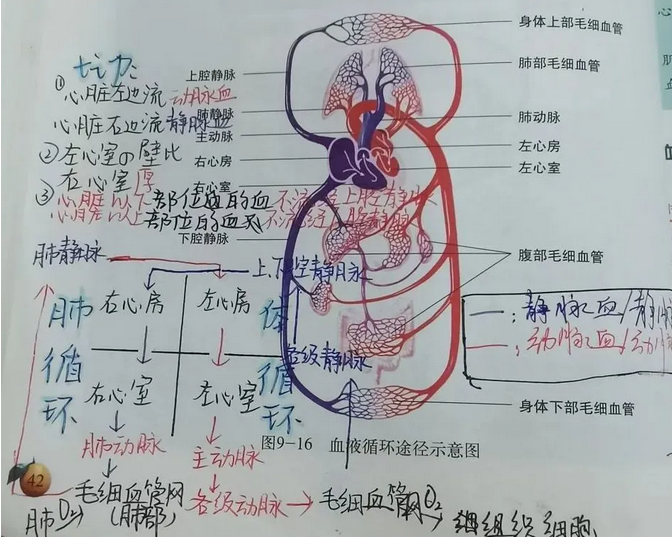 身体上部毛细血管
上腔静脉
肺部毛细血管
①心脏左边流动脉血
心脏右边流静脉血
肺静脉
肺动脉
主动脉
左心房
②左心室的壁比
右心室厚
右心房
左心室
右心室
③心脏以下部位的血不流经上腔静脉
心脏以上部位的血不流经下腔静脉
下腔静脉
腹部毛细血管
肺静脉
上、下腔静脉
肺循环
右心房
左心房
体循环
—：静脉血/静脉
—：动脉血/动脉
各级静脉
右心室
左心室
身体下部毛细血管
图9-16 血液循环途径示意图
肺动脉
主动脉
42
毛细血管网
(肺部)
各级动脉→毛细血管网
肺O₂
O₂
组织细胞